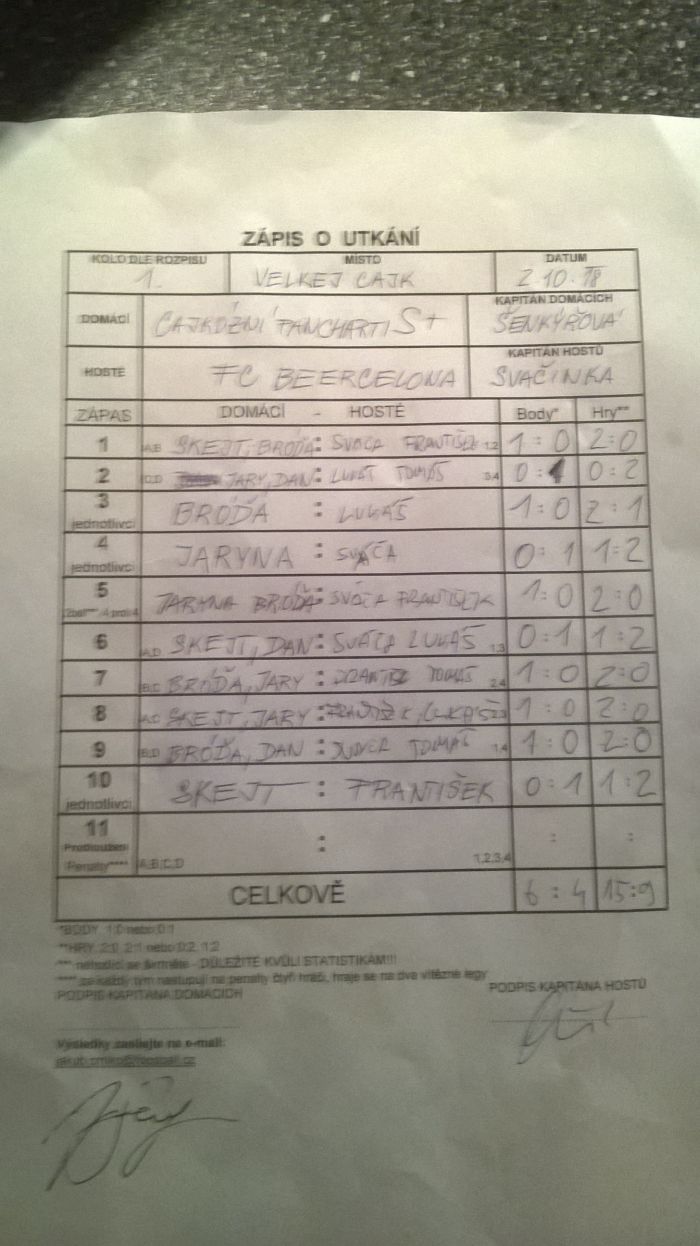 ZÁPIS O UTKÁNÍ
KOLO DLE ROZPISU MÍSTO DATUM
1. VELKEJ CAJK 2.10.18
DOMÁCÍ CAJKOŽNÍ PANCHARTI S+ KAPITÁN DOMÁCÍCH
ŠENKÝŘOVÁ
HOSTÉ FC BEERCELONA KAPITÁN HOSTŮ
SVAČINKA
ZÁPAS DOMÁCÍ - HOSTÉ Body* Hry**
1 A,B SKEJT, BRÓĎA : SVÁČA FRANTIŠEK 1,2 1 : 0 2 : 0
2 C,D JARY, DAN : LUKÁŠ TOMÁŠ 3,4 0 : 1 0 : 2
3 jednotlivci BRÓĎA : LUKÁŠ 1 : 0 2 : 1
4 jednotlivci JARYNA : SVÁČA 0 : 1 1 : 2
5 JARYNA BRÓĎA : SVÁČA FRANTIŠEK 1 : 0 2 : 0
6 A,D SKEJT, DAN : SVÁČA LUKÁŠ 1,3 0 : 1 1 : 2
7 B,C BRÓĎA, JARY : TOMÁŠ 2,4 1 : 0 2 : 0
8 A,C SKEJT, JARY : FRANTIŠEK, LUKÁŠ 2,3 1 : 0 2 : 0
9 B,D BRÓĎA, DAN : SVÁČA TOMÁŠ 1,4 1 : 0 2 : 0
10 jednotlivci SKEJT : FRANTIŠEK 0 : 1 1 : 2
11 Prodloužení : : :
Penalty**** A,B,C,D 1,2,3,4
CELKOVĚ 6 : 4 15 : 9
*BODY 1:0 nebo 0:1
**HRY 2:0, 2:1 nebo 0:2, 1:2
*** nehodící se škrtněte - DŮLEŽITÉ KVŮLI STATISTIKÁM!!!
**** za každý tým nastupují na penalty čtyři hráči, hraje se na dva vítězné legy
PODPIS KAPITÁNA DOMÁCÍCH PODPIS KAPITÁNA HOSTŮ
Výsledky zasílejte na e-mail: